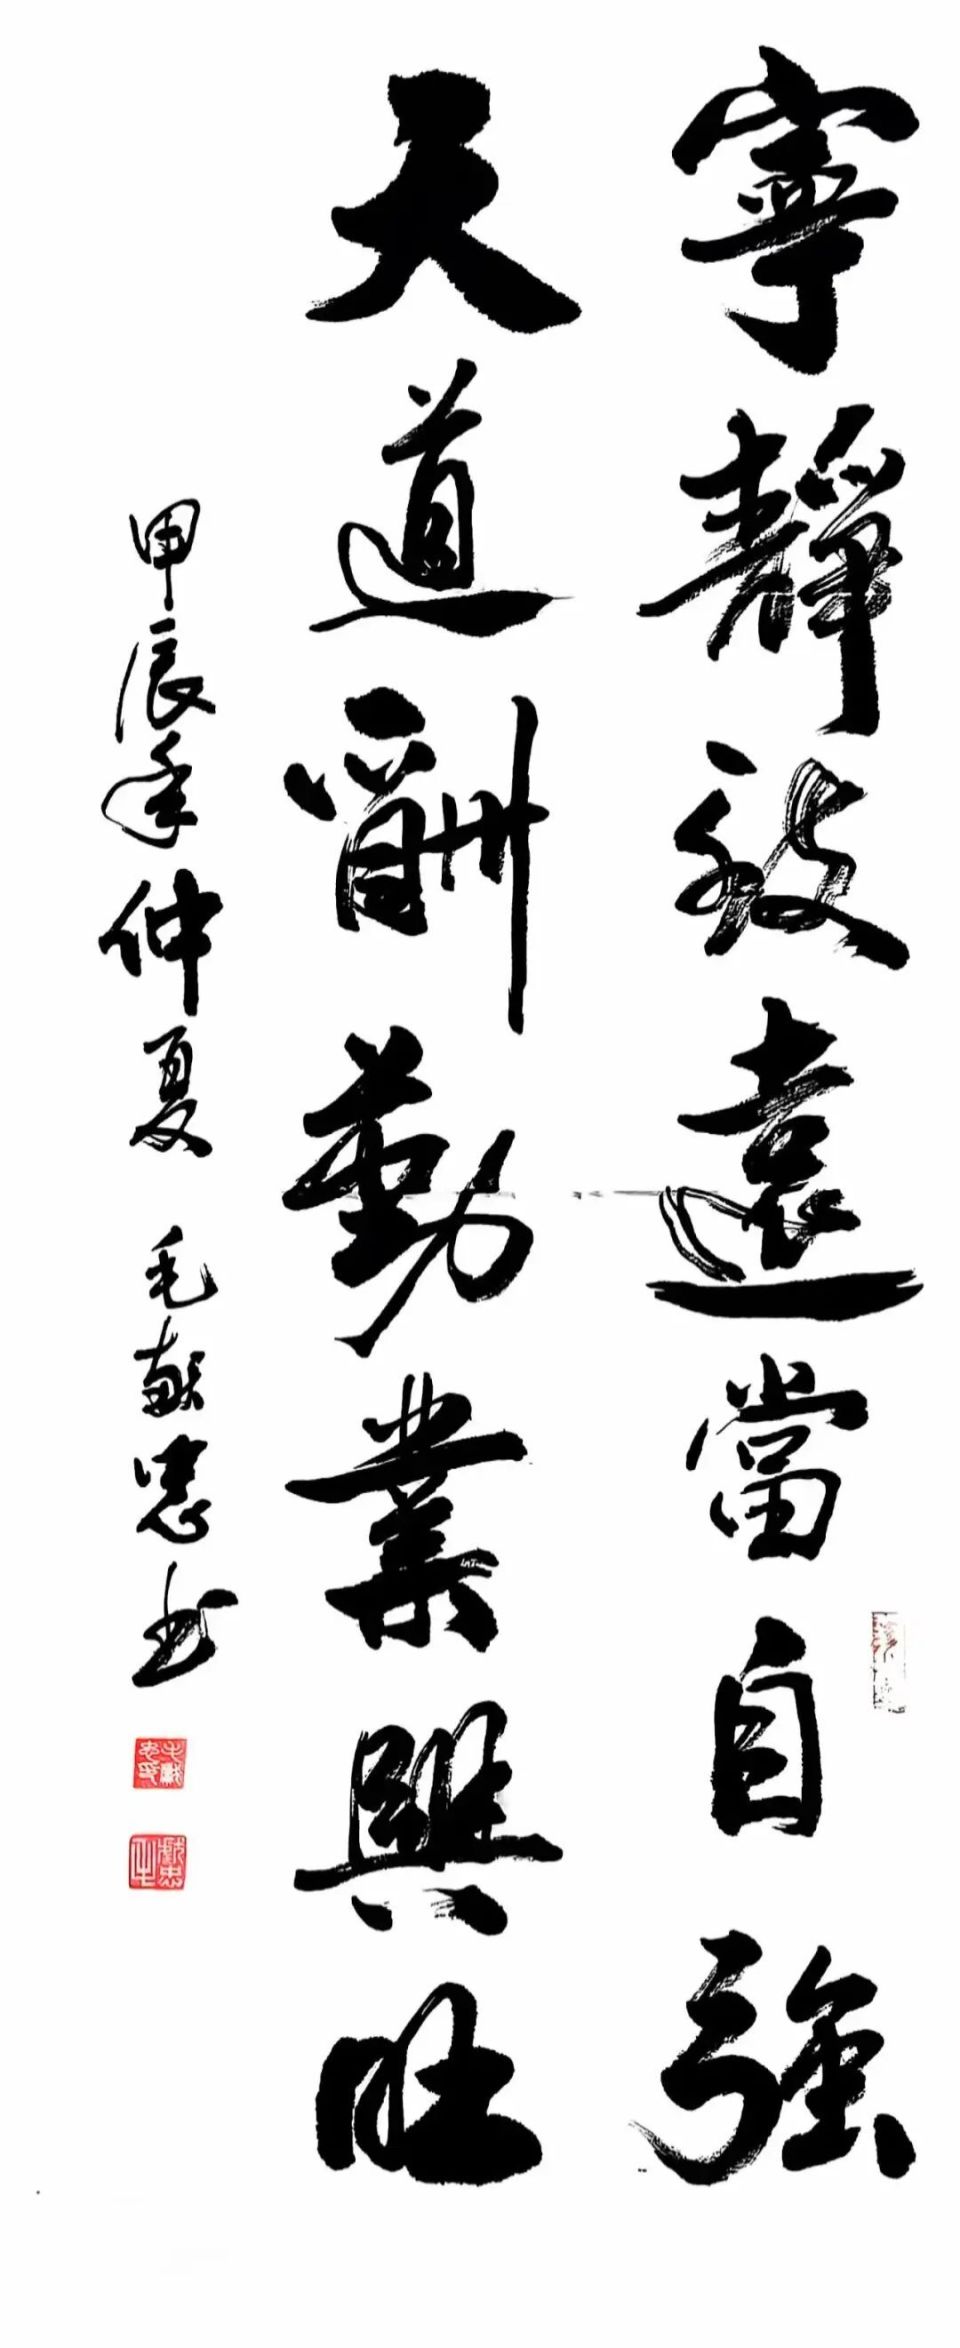 寧靜致遠當自強
天道酬勤業興旺
甲辰年仲夏 毛獻忠书